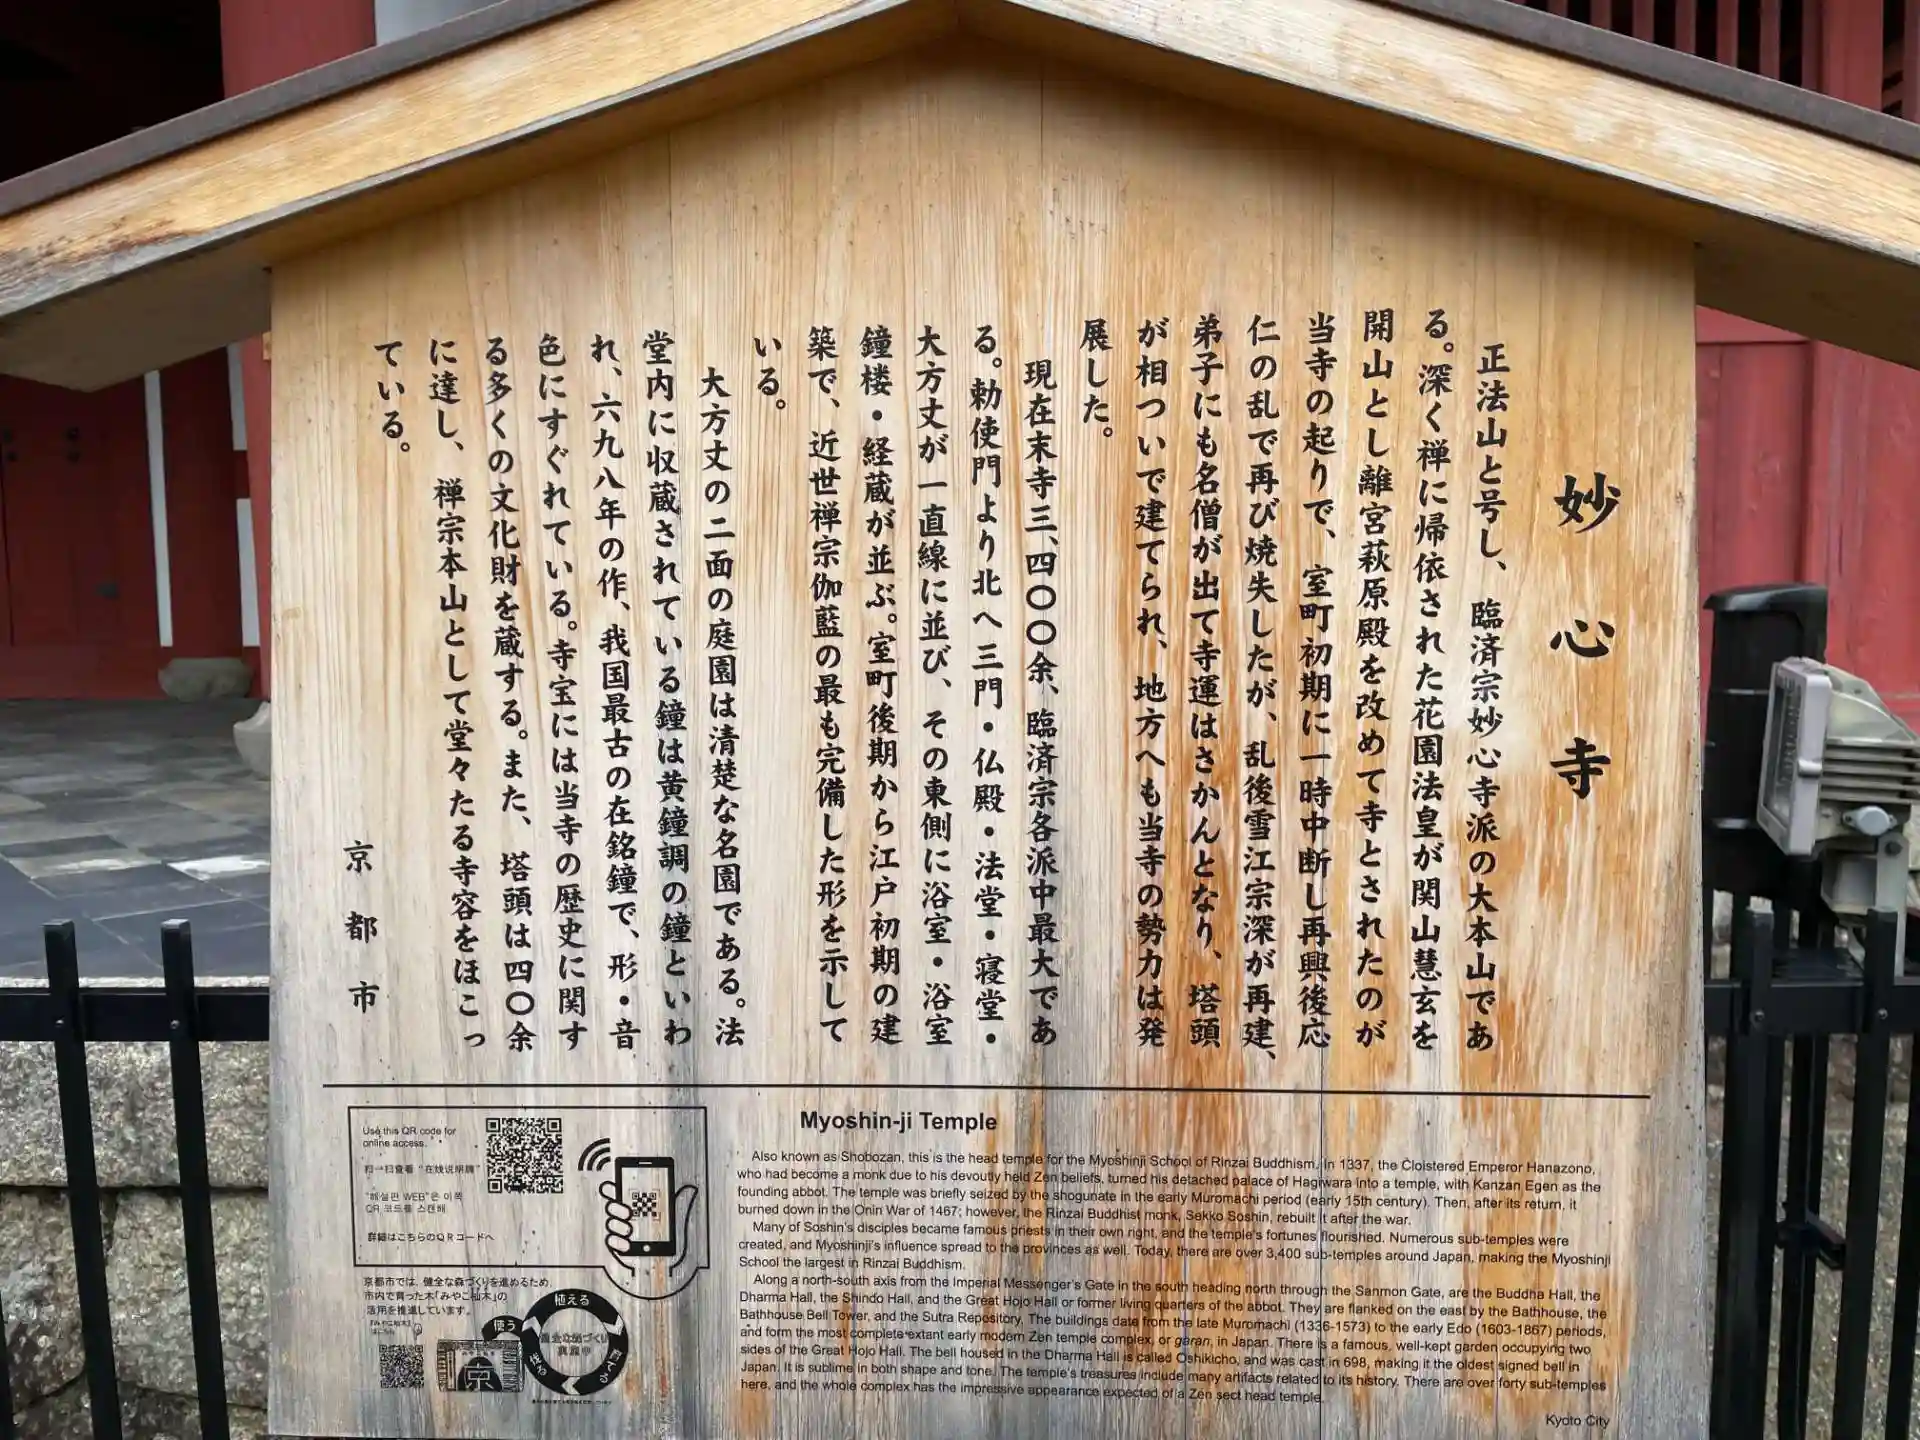 妙心寺
正法山と号し、臨済宗妙心寺派の大本山であ
る。深く禅に帰依された花園法皇が関山慧玄を
開山とし離宮萩原殿を改めて寺とされたのが
当寺の起りで、室町初期に一時中断し再興後応
仁の乱で再び焼失したが、乱後雪江宗深が再建、
弟子にも名僧が出て寺運はさかんとなり、塔頭
が相ついで建てられ、地方へも当寺の勢力は発
展した。
現在末寺三、四〇〇余、臨済宗各派中最大であ
る。勅使門より北へ三門・仏殿・法堂・寝堂・
大方丈が一直線に並び、その東側に浴室・浴室
鐘楼・経蔵が並ぶ。室町後期から江戸初期の建
築で、近世禅宗伽藍の最も完備した形を示して
いる。
大方丈の二面の庭園は清楚な名園である。法
堂内に収蔵されている鐘は黄鐘調の鐘といわ
れ、六九八年の作、我国最古の在銘鐘で、形・音
色にすぐれている。寺宝には当寺の歴史に関す
る多くの文化財を蔵する。また、塔頭は四〇余
に達し、禅宗本山として堂々たる寺容をほこっ
ている。
京都市
Use this QR code for
online access.
扫一扫查看“在线说明牌”
"해설판 WEB"은 이쪽
QR 코드를 스캔해
詳細はこちらのQRコードへ
京都市では、健全な森づくりを進めるため、
市内で育った木「みやこ杣木」の
活用を推進しています。
植える
育てる
伐る
使う
京
Myoshin-ji Temple
Also known as Shobozan, this is the head temple for the Myoshinji School of Rinzai Buddhism. In 1337, the Cloistered Emperor Hanazono,
who had become a monk due to his devoutly held Zen beliefs, turned his detached palace of Hagiwara into a temple, with Kanzan Egen as the
founding abbot. The temple was briefly seized by the shogunate in the early Muromachi period (early 15th century). Then, after its return, it
burned down in the Onin War of 1467; however, the Rinzai Buddhist monk, Sekko Soshin, rebuilt it after the war.
Many of Soshin's disciples became famous priests in their own right, and the temple's fortunes flourished. Numerous sub-temples were
created, and Myoshinji's influence spread to the provinces as well. Today, there are over 3,400 sub-temples around Japan, making the Myoshinji
School the largest in Rinzai Buddhism.
Along a north-south axis from the Imperial Messenger's Gate in the south heading north through the Sanmon Gate, are the Buddha Hall, the
Dharma Hall, the Shindo Hall, and the Great Hojo Hall or former living quarters of the abbot. They are flanked on the east by the Bathhouse, the
Bathhouse Bell Tower, and the Sutra Repository. The buildings date from the late Muromachi (1336-1573) to the early Edo (1603-1867) periods,
and form the most complete extant early modern Zen temple complex, or garan, in Japan. There is a famous, well-kept garden occupying two
sides of the Great Hojo Hall. The bell housed in the Dharma Hall is called Oshikicho, and was cast in 698, making it the oldest signed bell in
Japan. It is sublime in both shape and tone. The temple's treasures include many artifacts related to its history. There are over forty sub-temples
here, and the whole complex has the impressive appearance expected of a Zen sect head temple.
Kyoto City